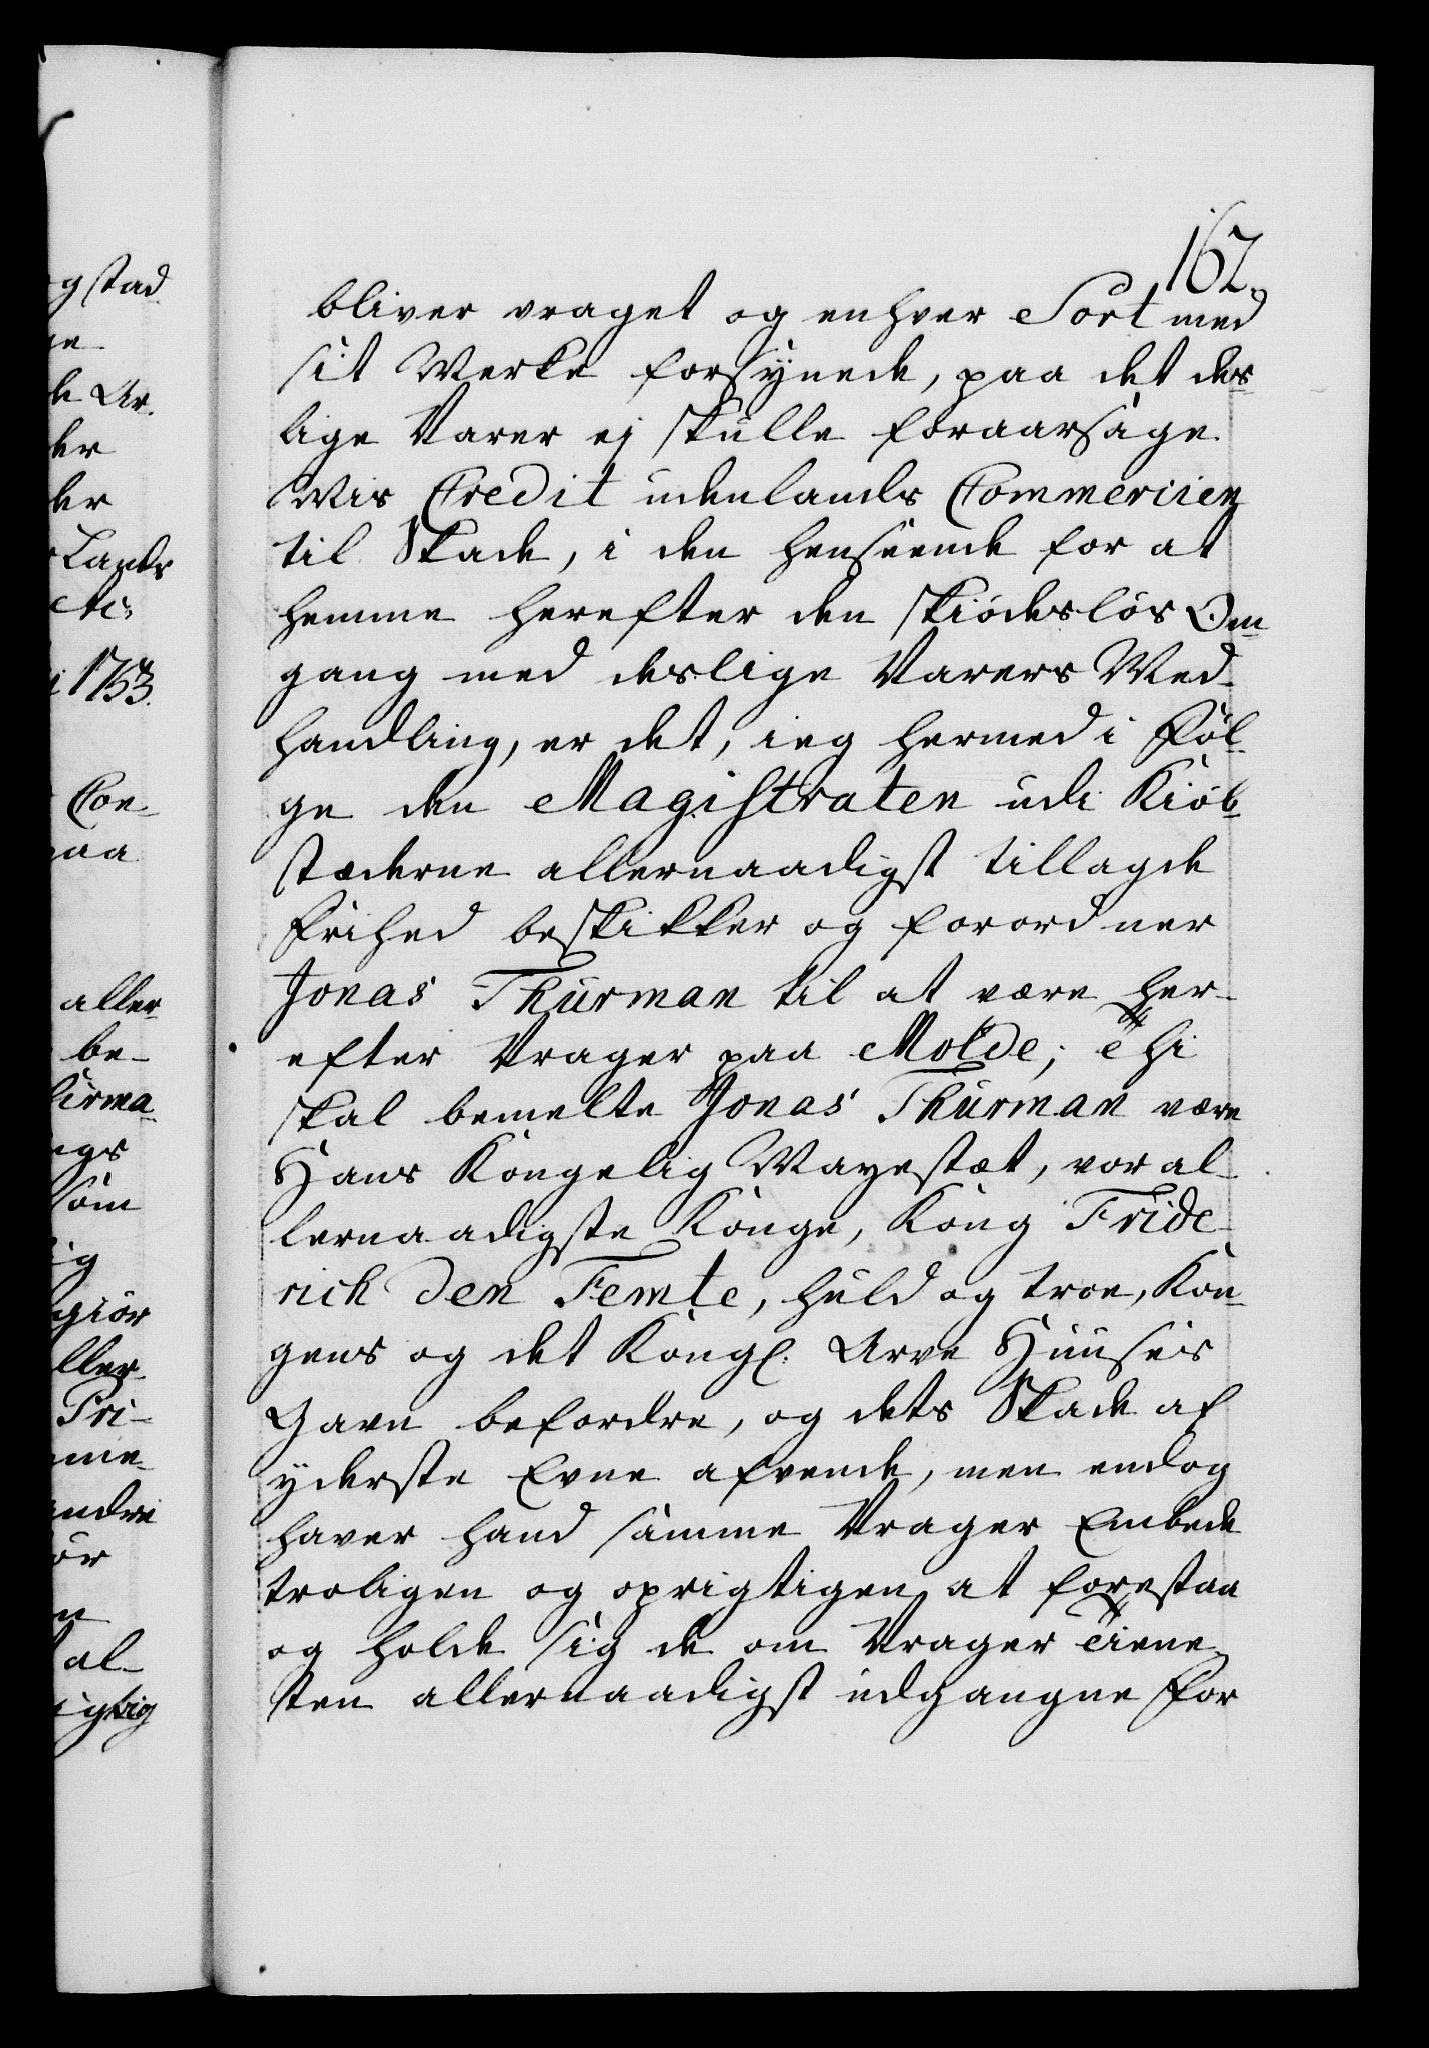 gstad
162.
bliver vraget og enhver Sort med
sit Merke forsÿnede, paa det des-
lige Varer ej skulle foraarsage
Mis Credit udenlands Commercien
til Skade, i den henseende for at
hemme herefter den skiødesløs Om-
gang med deslige Varers Med-
handling, er det, ieg hermed i Føl-
ge den Magistraten udi Kiøb-
stæderne allernaadigst tillagde
Frihed beskikker og forordner
Jonas Thurman til at være her-
efter Vrager paa Molde; thi
skal bemelte Jonas Thurman være
Hans Kongelig Mayestæt, vor al-
lernaadigste Konge, Kong Fride-
rich den Femte, huld og troe, Kon-
gens og det Kongl. Arve Huuses
Gavn befordre, og dets Skade af
ÿderste Evne afvende, men endog
haver hand samme Vrager Embede
troligen og oprigtigen at forestaa
og holde sig de om Vrager Tiene-
sten allernaadigst udgangne For
de Ar.
der
der
Lands
etc:
i 1753.
Con-
paa
aller
be-
firma-
som
giør
ller-
Pri-
andre
al-